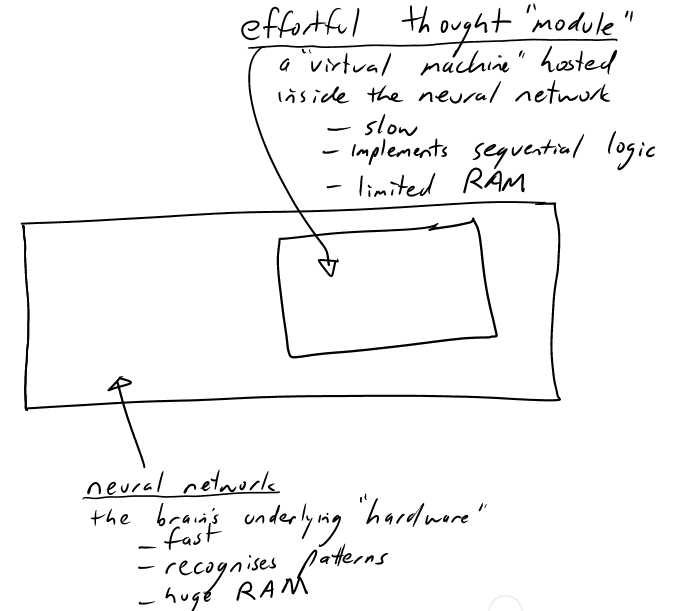 effortful thought "module"
a "virtual machine" hosted
inside the neural network
- slow
- implements sequential logic
- limited RAM
neural network
the brain's underlying "hardware"
- fast
- recognises patterns
- huge RAM